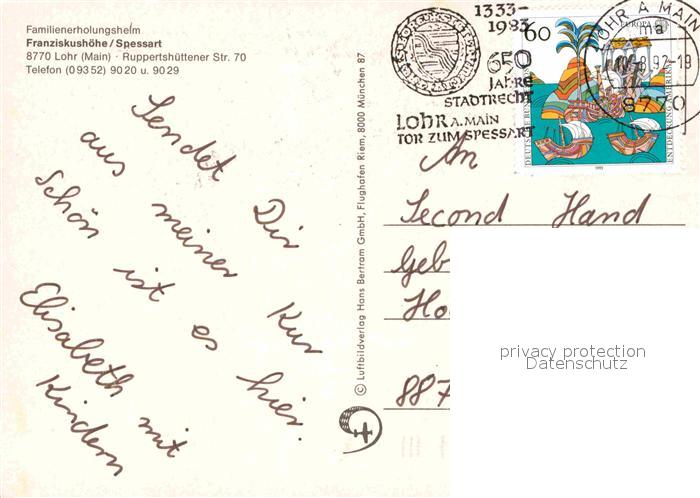 Familienerholungsheim
Franziskushöhe/Spessart
8770 Lohr (Main) · Ruppertshüttener Str. 70
Telefon (09352) 9020 u. 9029
1333-
1983
650
JAHRE
STADTRECHT
LOHR A. MAIN
TOR ZUM SPESSART
60
EUROPA
DEUTSCHE BUNDES
ENTDECKUNG AMERIKAS
LOHR A MAIN
ma
8.92-19
8770
Sendet Dir
aus meiner Kur
Schön ist es hier.
Elisabeth mit
Kindern
© Luftbildverlag Hans Bertram GmbH, Flughafen Riem, 8000 München 87
An
Second Hand
Geb
Ho
887
privacy protection
Datenschutz